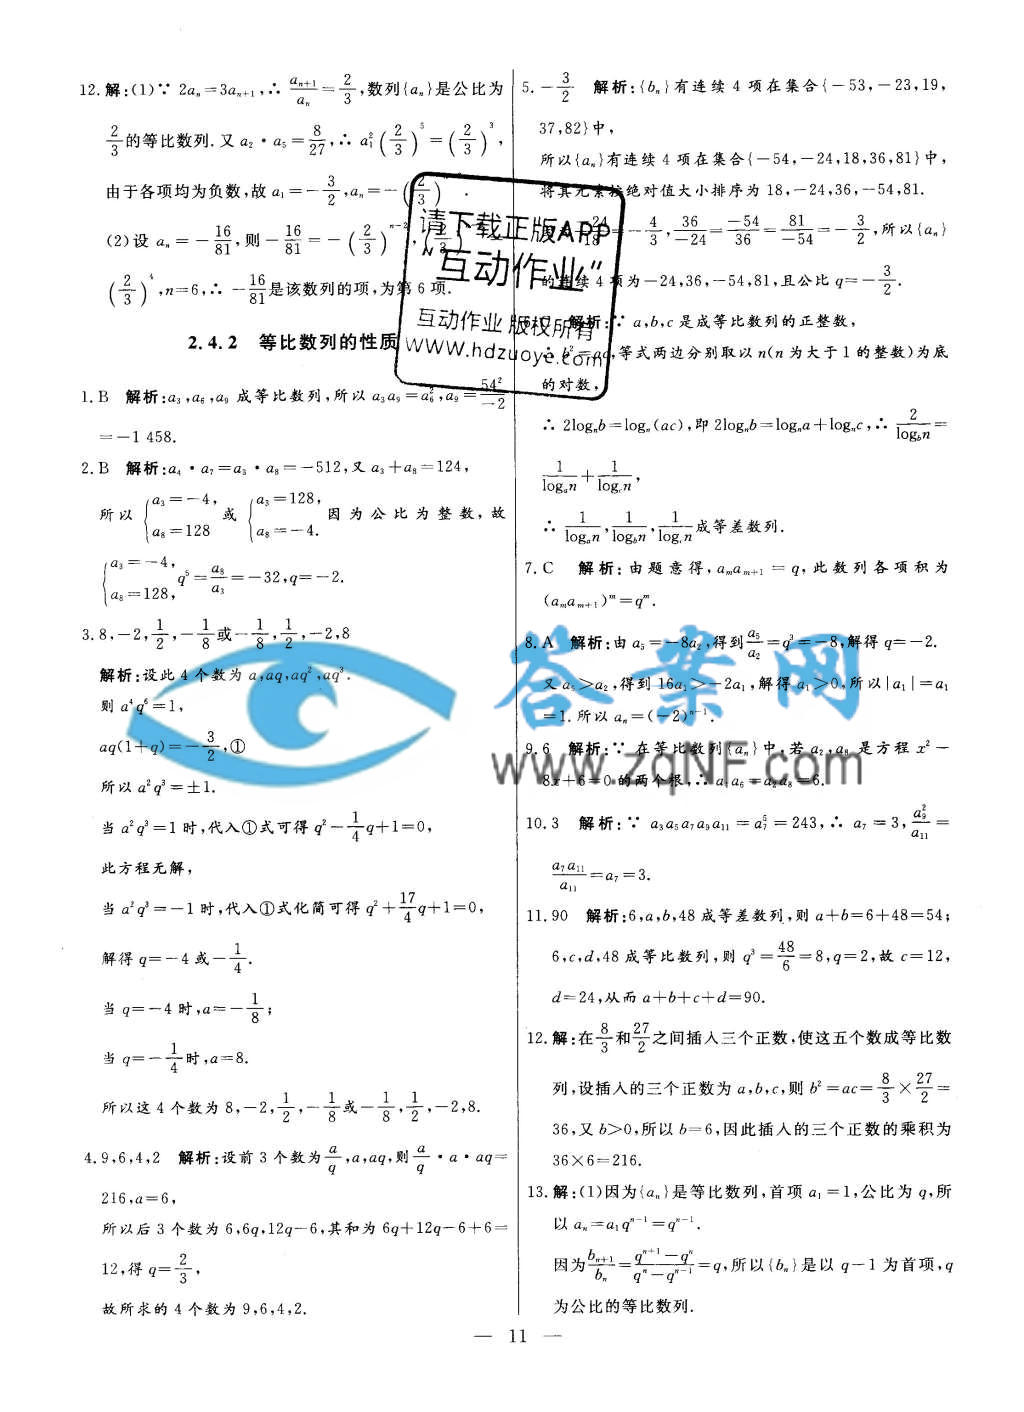 12.解:(1)∵ 2aₙ=3aₙ₊₁,∴ aₙ₊₁/aₙ=2/3,数列{aₙ}是公比为
2/3的等比数列.又a₂·a₅=8/27,∴ a₁²(2/3)⁵=(2/3)³,
由于各项均为负数,故a₁=-3/2,aₙ=-(2/3)
(2)设aₙ=-16/81,则-16/81=-(2/3)ⁿ⁻²,
(2/3)⁴,n=6,∴ -16/81是该数列的项,为第6项.
2.4.2 等比数列的性质
1.B 解析:a₃,a₆,a₉成等比数列,所以a₃a₉=a₆²,a₉=54²/-2
=-1 458.
2.B 解析:a₄·a₇=a₃·a₈=-512,又a₃+a₈=124,
所以{a₃=-4, a₈=128 或 {a₃=128, a₈=-4. 因为公比为整数,故
{a₃=-4, a₈=128, q⁵=a₈/a₃=-32,q=-2.
3.8,-2,1/2,-1/8或-1/8,1/2,-2,8
解析:设此4个数为a,aq,aq²,aq³.
则a⁴q⁶=1,
aq(1+q)=-3/2,①
所以a²q³=±1.
当a²q³=1时,代入①式可得q²-1/4q+1=0,
此方程无解,
当a²q³=-1时,代入①式化简可得q²+17/4q+1=0,
解得q=-4或-1/4.
当q=-4时,a=-1/8;
当q=-1/4时,a=8.
所以这4个数为8,-2,1/2,-1/8或-1/8,1/2,-2,8.
4.9,6,4,2 解析:设前3个数为a/q,a,aq,则a/q·a·aq=
216,a=6,
所以后3个数为6,6q,12q-6,其和为6q+12q-6+6=
12,得q=2/3,
故所求的4个数为9,6,4,2.
5.-3/2 解析:{bₙ}有连续4项在集合{-53,-23,19,
37,82}中,
所以{aₙ}有连续4项在集合{-54,-24,18,36,81}中,
将其元素按绝对值大小排序为18,-24,36,-54,81.
-24/18=-4/3,36/-24=-54/36=81/-54=-3/2,所以{aₙ}
的连续4项为-24,36,-54,81,且公比q=-3/2.
解析:∵ a,b,c是成等比数列的正整数,
∴ b²=ac,等式两边分别取以n(n为大于1的整数)为底
的对数,
∴ 2logₙb=logₙ(ac),即2logₙb=logₙa+logₙc,∴ 2/log_bn=
1/logₐn+1/log_cn,
∴ 1/logₐn,1/log_bn,1/log_cn成等差数列.
7.C 解析:由题意得,aₘaₘ₊₁=q,此数列各项积为
(aₘaₘ₊₁)ᵐ=qᵐ.
8.A 解析:由a₅=-8a₂,得到a₅/a₂=q³=-8,解得q=-2.
又a₅>a₂,得到16a₁>-2a₁,解得a₁>0,所以|a₁|=a₁
=1.所以aₙ=(-2)ⁿ⁻¹.
9.6 解析:∵ 在等比数列{aₙ}中,若a₂,a₈是方程x²-
8x+6=0的两个根,∴ a₄a₆=a₂a₈=6.
10.3 解析:∵ a₃a₅a₇a₉a₁₁=a₇⁵=243,∴ a₇=3,a₉²/a₁₁=
a₇a₁₁/a₁₁=a₇=3.
11.90 解析:6,a,b,48成等差数列,则a+b=6+48=54;
6,c,d,48成等比数列,则q³=48/6=8,q=2,故c=12,
d=24,从而a+b+c+d=90.
12.解:在8/3和27/2之间插入三个正数,使这五个数成等比数
列,设插入的三个正数为a,b,c,则b²=ac=8/3×27/2=
36,又b>0,所以b=6,因此插入的三个正数的乘积为
36×6=216.
13.解:(1)因为{aₙ}是等比数列,首项a₁=1,公比为q,所
以aₙ=a₁qⁿ⁻¹=qⁿ⁻¹.
因为bₙ₊₁/bₙ=(qⁿ⁺¹-qⁿ)/(qⁿ-qⁿ⁻¹)=q,所以{bₙ}是以q-1为首项,q
为公比的等比数列.
— 11 —
请下载正版APP
“互动作业”
互动作业 版权所有
www.hdzuoye.com
答案网
www.zqNF.com